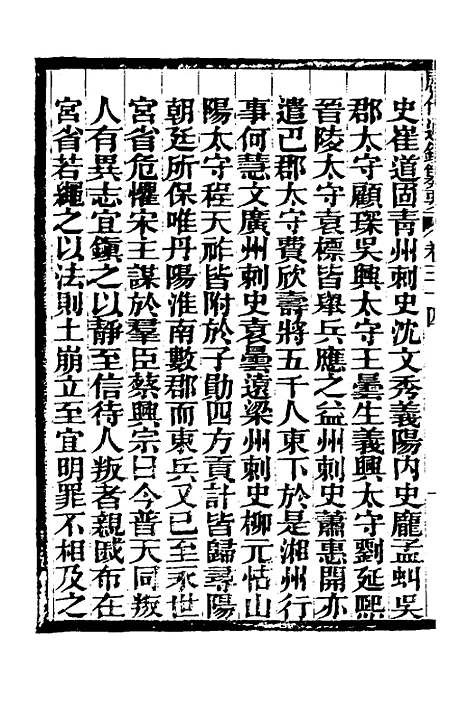 史崔道固靑州刺史沈文秀義陽内史龐孟虯吳
郡太守顧琛吳興太守王曇生義興太守劉延熙
晉陵太守袁標皆舉兵應之益州刺史蕭惠開亦
遣巴郡太守費欣壽將五千人東下於是湘州行
事何慧文廣州刺史袁曇遠梁州刺史柳元怙山
陽太守程天祚皆附於子勛四方貢計皆歸尋陽
朝廷所保唯丹陽淮南數郡而東兵又已至永世
宮省危懼宋主謀於羣臣蔡興宗曰今普天同叛
人有異志宜鎭之以靜至信待人叛者親戚布在
宮省若繩之以法則土崩立至宜明罪不相及之